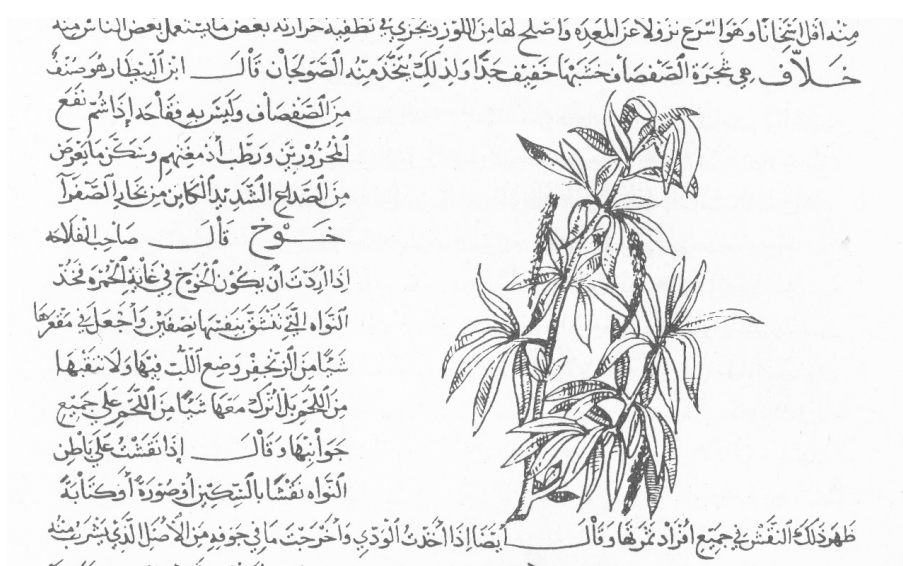 منه أقل اسخانا وهو أسرع نزولا عن المعدة وأصلح لها من اللوز ويجزي في تطفية حرارته بعض ما يستعمل بعض الناس منه
خلاف هي شجرة الصفصاف خشبها خفيف جدا ولذلك يتخذ منه الصولجان قال ابن البيطار هو صنف
من الصفصاف وليس به وفقاحه إذا شم نفع
المحرورين ورطب أدمغتهم وسكن ما يعرض
من الصداع الشديد الكاين من بخار الصفرا
خوخ قال صاحب الفلاحة
إذا أردت أن يكون الخوخ في غاية الحمرة فخذ
النواه التي تنشق بنفسها نصفين واجعل في مقعرها
شيا من الزنجفر وضع اللب فيها ولا تنقيها
من اللحم بل اترك معها شيا من اللحم على جميع
جوانبها وقال إذا نقشت على باطن
النواه نقشا بالسكين أو صورة أو كتابة
ظهر ذلك النقش في جميع أفراد ثمرتها وقال أيضا إذا أخذت الودي وأخرجت ما في جوفه من الأصل الذي يشرب منه